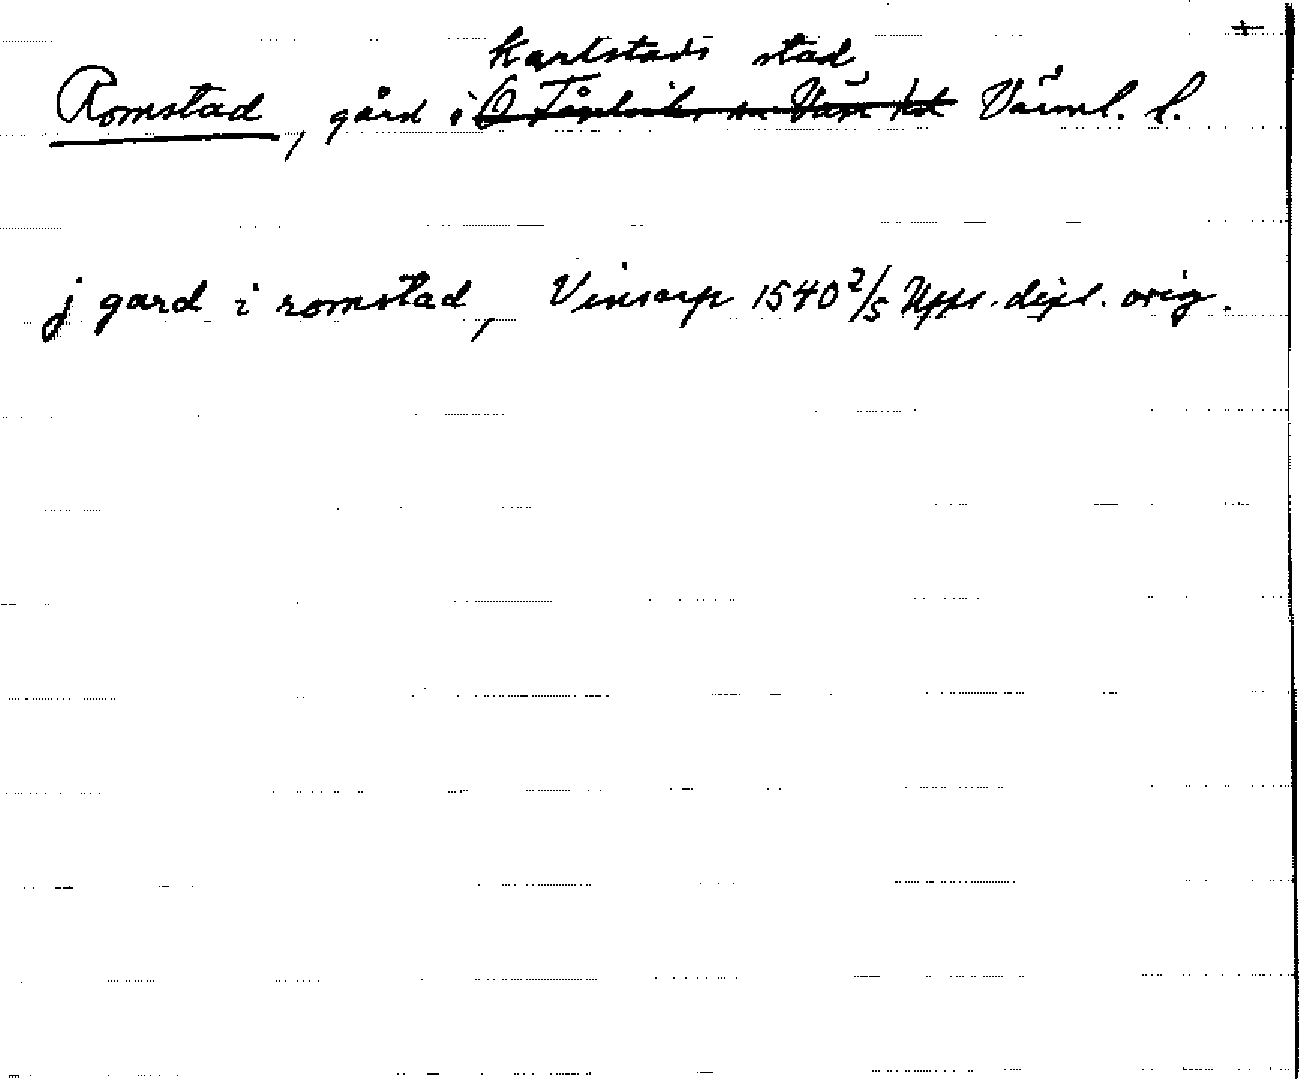 +
Karlstads stad
Romstad, gård i Ö Fågelvik, sn Väse hd Värml. l.
j gard i romstad, Vinsarp 1540 2/5 Upps. dipl. orig.